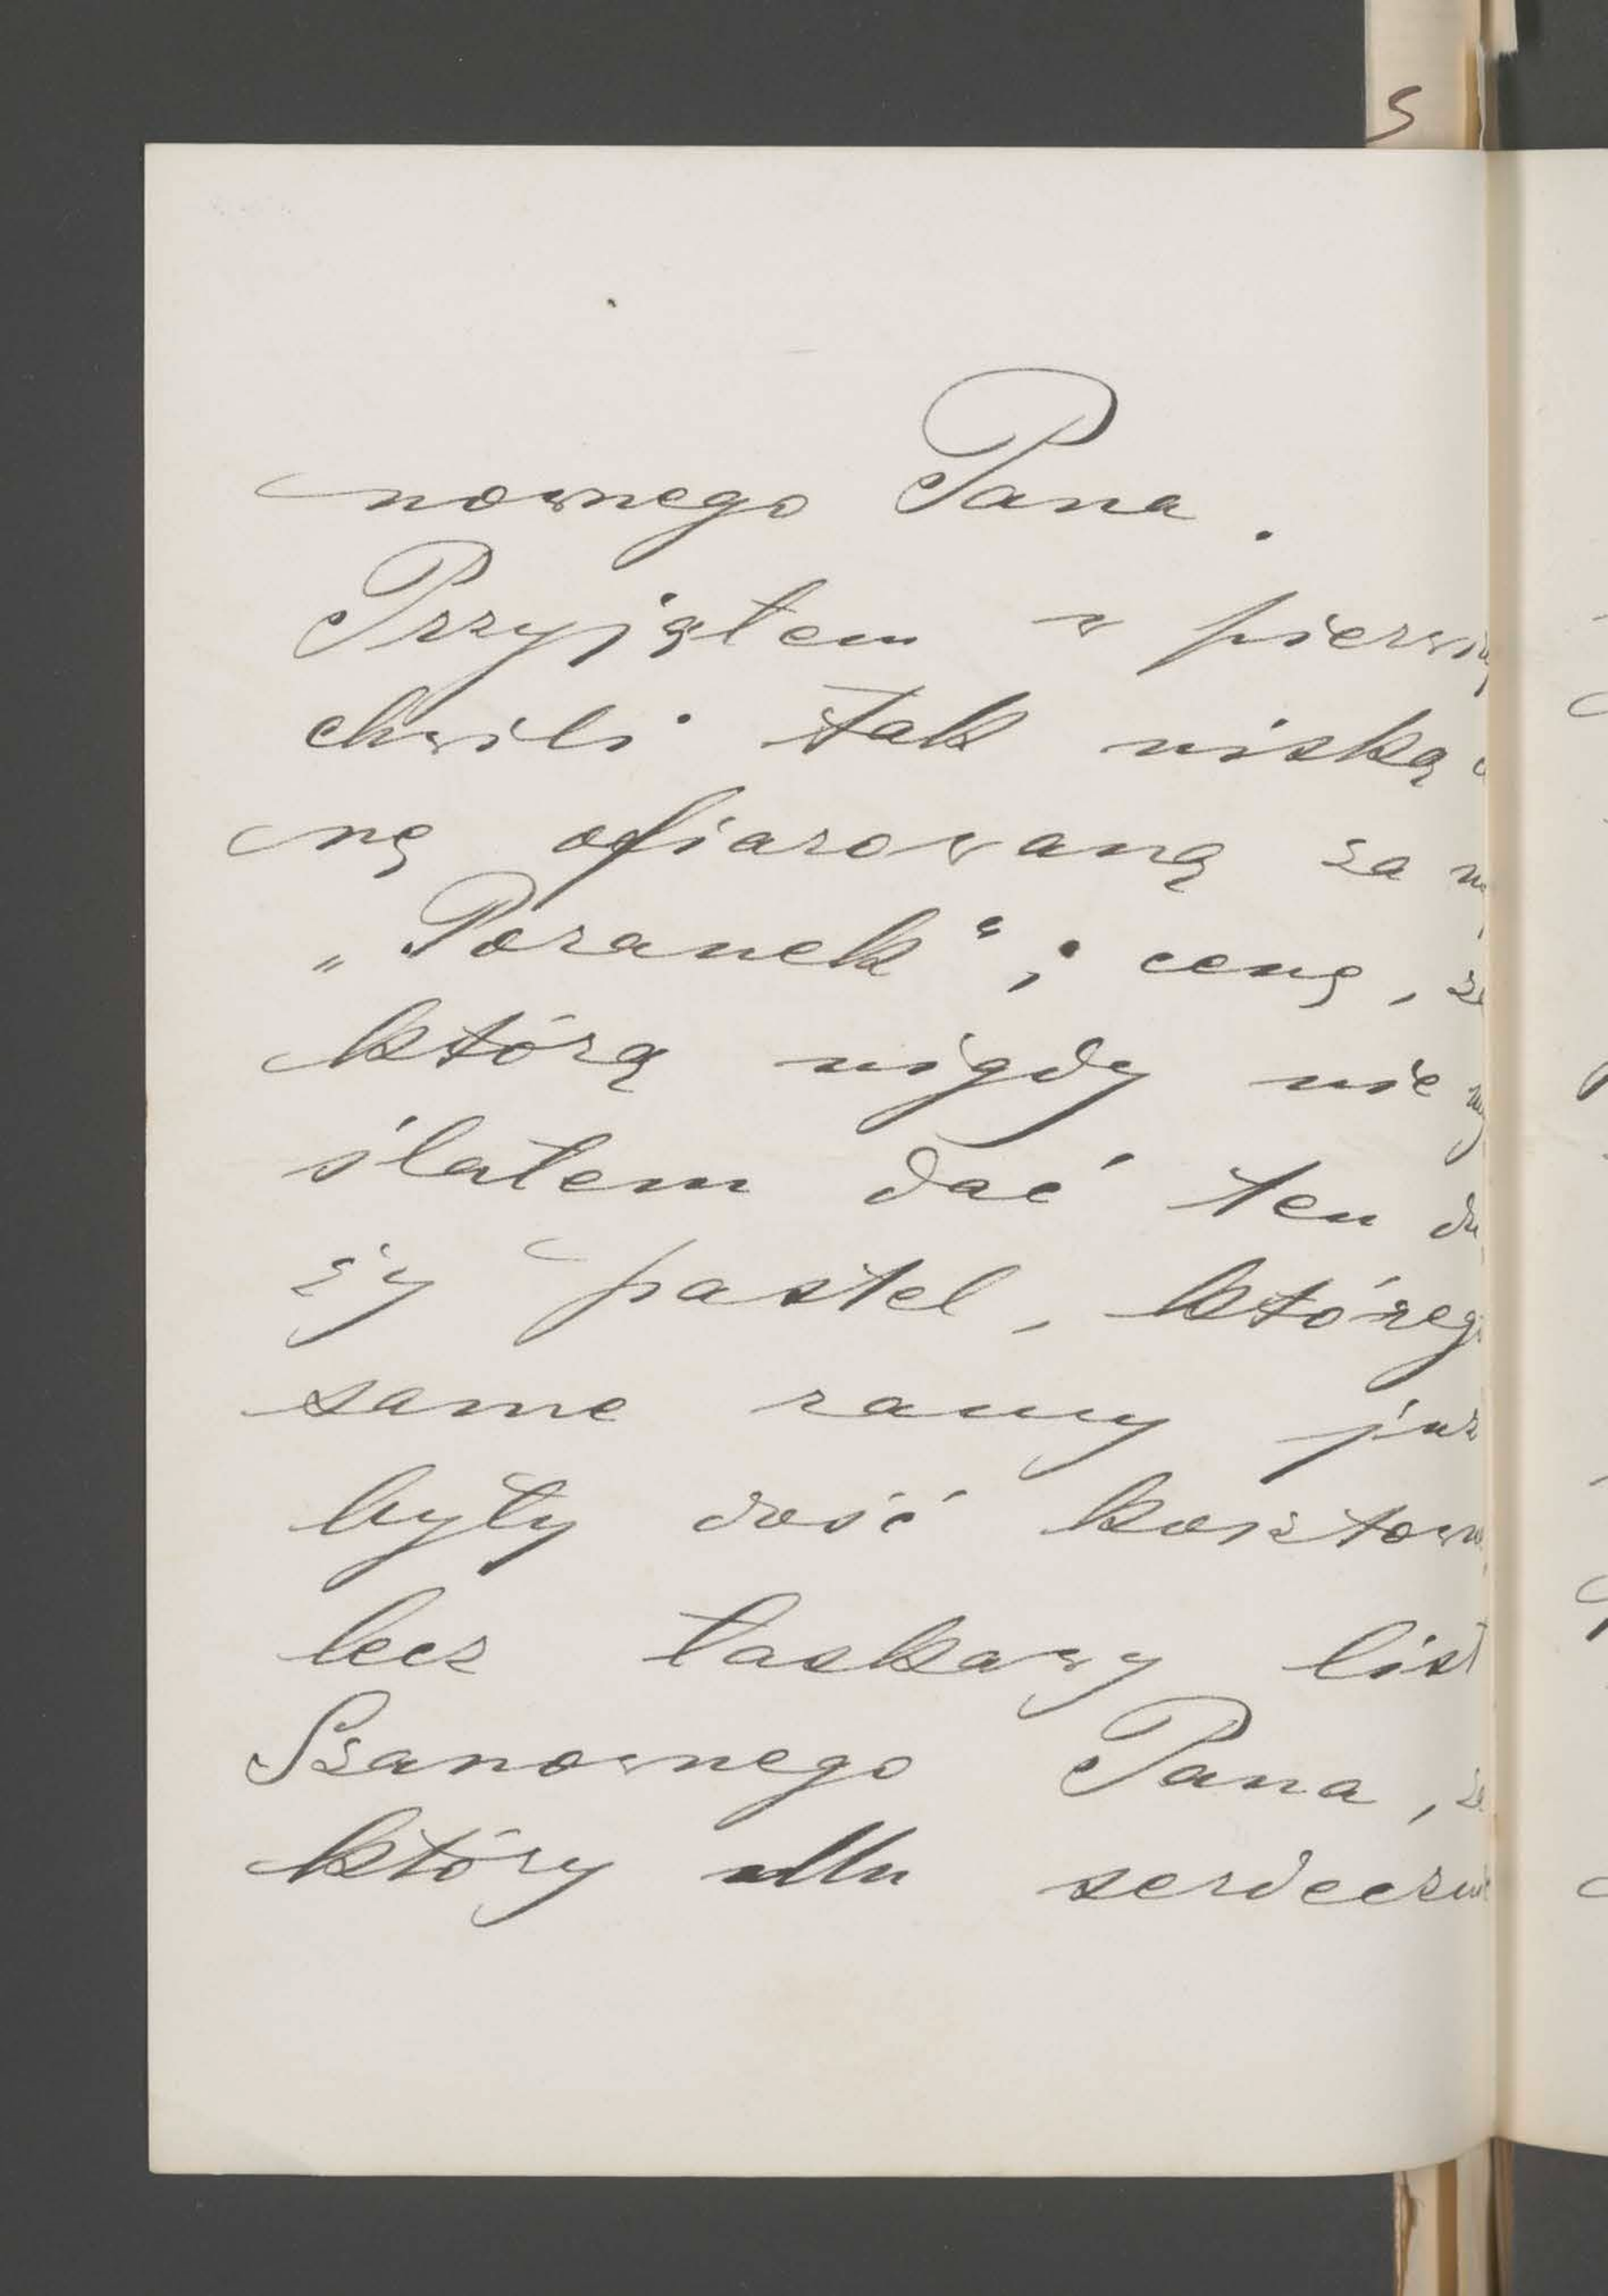 5
nownego Pana.
Przyjąłem w pierwszej
chwili tak niską
nę ofiarowaną za
„Poranek“; cenę, za
którą nigdy nie my
ślałem dać ten du
ży pastel, którego
same ramy już
były dość kosztown
lecz łaskawy list
Szanownego Pana, za
który Mu serdecznie